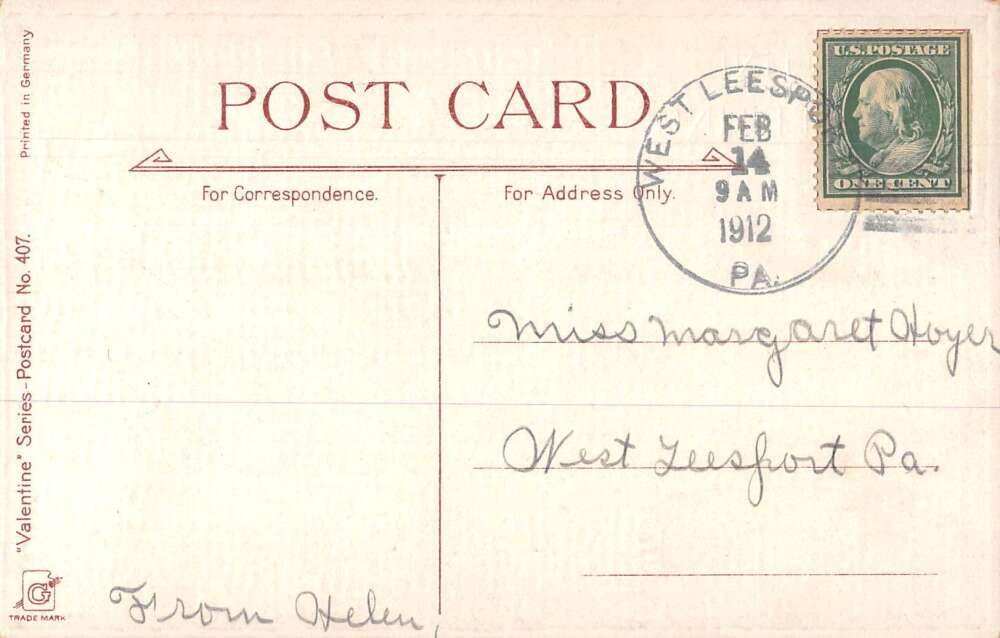 Printed in Germany
"Valentine" Series – Postcard No. 407.
G
TRADE MARK
POST CARD
For Correspondence.
For Address Only.
WEST LEESPORT
FEB
14
9 AM
1912
PA.
U.S. POSTAGE
ONE CENT
Miss Margaret Hoyer
West Leesport Pa.
From Helen,